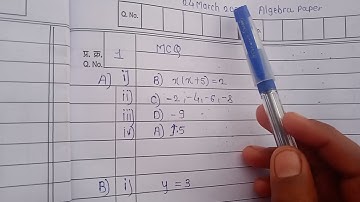 24 March Algebra Paper
Q. No.
प्र. क्र. 1 MCQ
Q. No.
A) i) B) x(x+5)=2
ii) C) -2, -4, -6, -8
iii) D) -9
iv) A) 1.5
B) i) y = 3